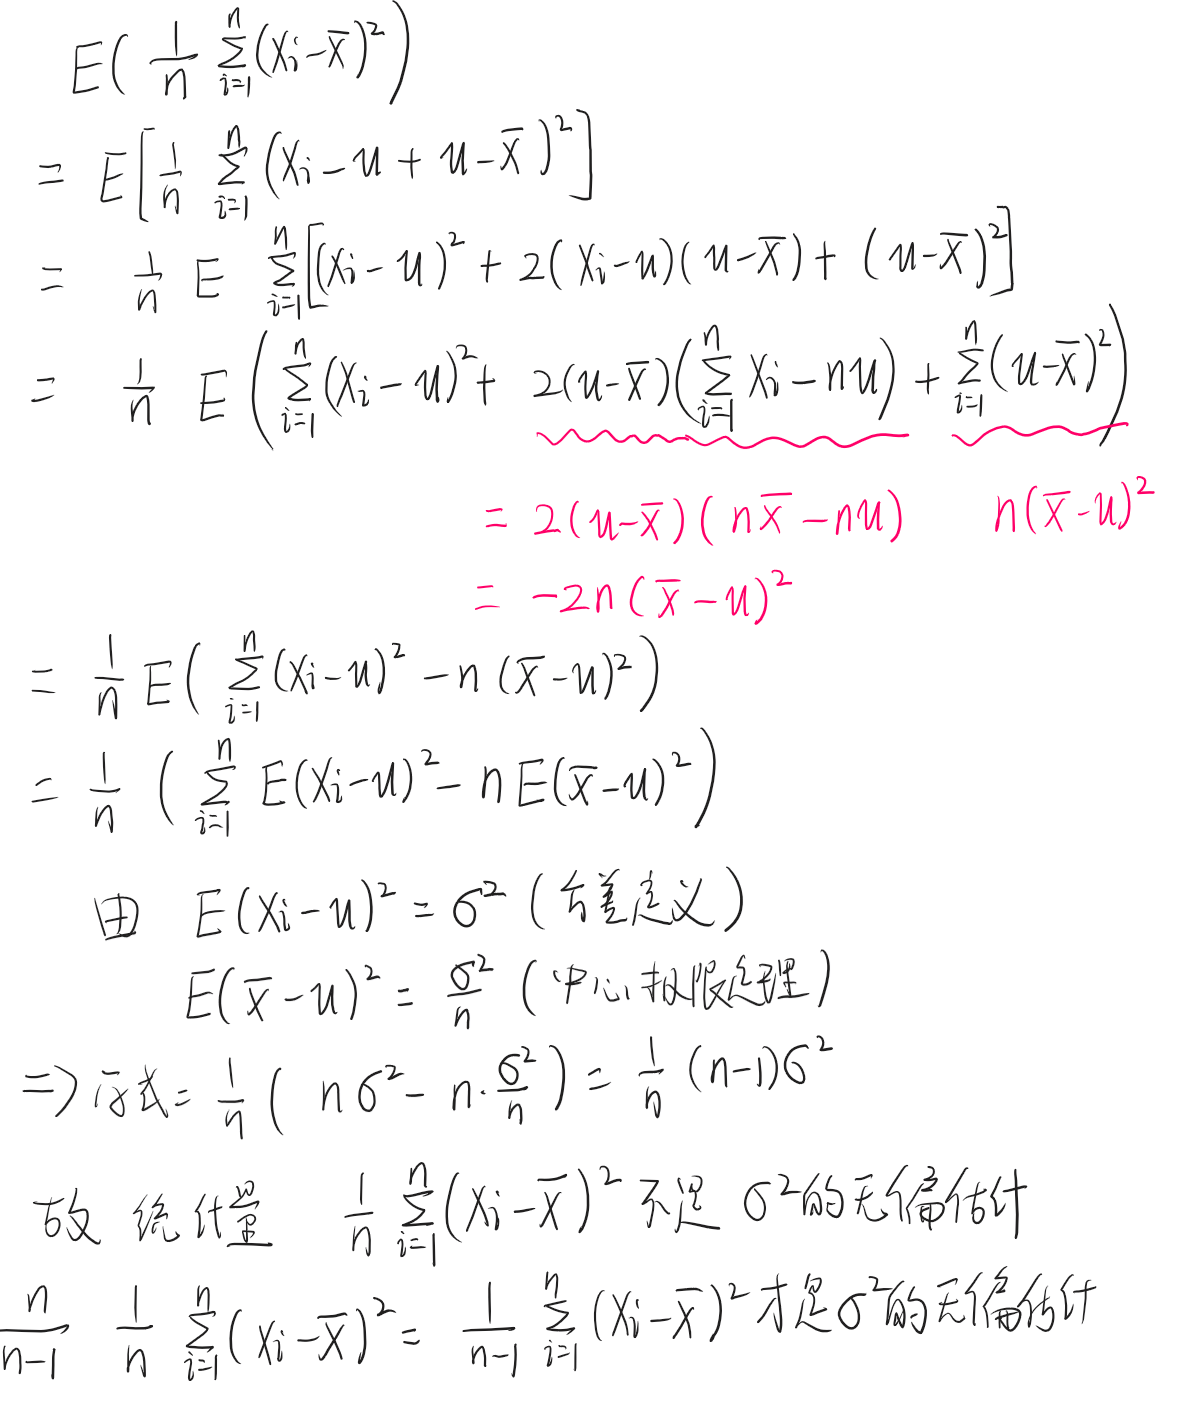 E( 1/n Σ_{i=1}^{n} (x_i - x̄)² )
= E[ 1/n Σ_{i=1}^{n} (x_i - u + u - x̄)² ]
= 1/n E Σ_{i=1}^{n} [(x_i - u)² + 2(x_i - u)(u - x̄) + (u - x̄)²]
= 1/n E ( Σ_{i=1}^{n} (x_i - u)² + 2(u - x̄)(Σ_{i=1}^{n} x_i - nu) + Σ_{i=1}^{n} (u - x̄)² )
= 2(u - x̄)(nx̄ - nu) n(x̄ - u)²
= -2n(x̄ - u)²
= 1/n E( Σ_{i=1}^{n} (x_i - u)² - n(x̄ - u)² )
= 1/n ( Σ_{i=1}^{n} E(x_i - u)² - nE(x̄ - u)² )
由 E(x_i - u)² = σ² (方差定义)
E(x̄ - u)² = σ²/n (中心极限定理)
=> 原式 = 1/n ( nσ² - n·σ²/n ) = 1/n (n-1)σ²
故 统计量 1/n Σ_{i=1}^{n} (x_i - x̄)² 不是 σ²的无偏估计
n/(n-1) 1/n Σ_{i=1}^{n} (x_i - x̄)² = 1/(n-1) Σ_{i=1}^{n} (x_i - x̄)² 才是σ²的无偏估计